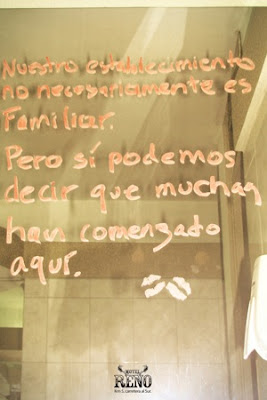 Nuestro establecimiento
no necesariamente es
Familiar.
Pero sí podemos
decir que muchas
han comenzado
aquí.
HOTEL
RENO
Km 5 carretera al Sur